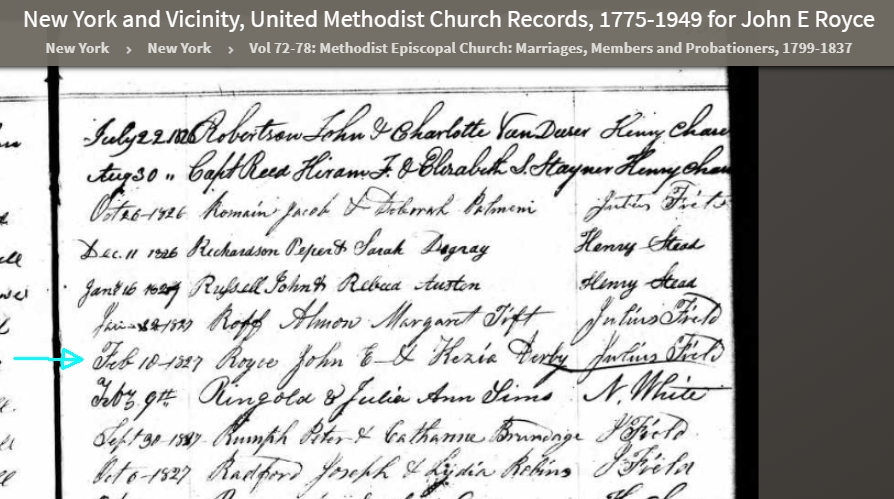 New York and Vicinity, United Methodist Church Records, 1775-1949 for John E Royce
New York › New York › Vol 72-78: Methodist Episcopal Church: Marriages, Members and Probationers, 1799-1837
July 22 1826 Robertson John & Charlotte VanDuser Henry Chase
Aug 30 " Capt Reed Hiram F. & Elisabeth S. Stayner Henry Chase
Oct 26-1826 Romain Jacob & Deborah Julius Field
Dec. 11 1826 Richardson & Sarah Degray Henry Stead
Jany 16 1827 Russell John & Rebeca Austen Henry Stead
1827 Roff Almon Margaret Tift Julius Field
Feb 10-1827 Royce John E & Kezia Derby Julius Field
9th Ringold & Julia Ann Sims N. White
Sept 30-1827 Rumph Peter & Catharine Brundrige J Field
Oct 6-1827 Radford Joseph & Lydia Robins J Field